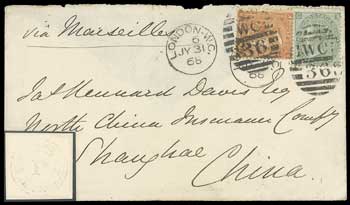 via Marseilles
LONDON-W.C.
6
JY 31
68
W.C.
36
68
W.C.
36
Jas Kennard Davis Esq
North China Insurance Compy
Shanghae
China.